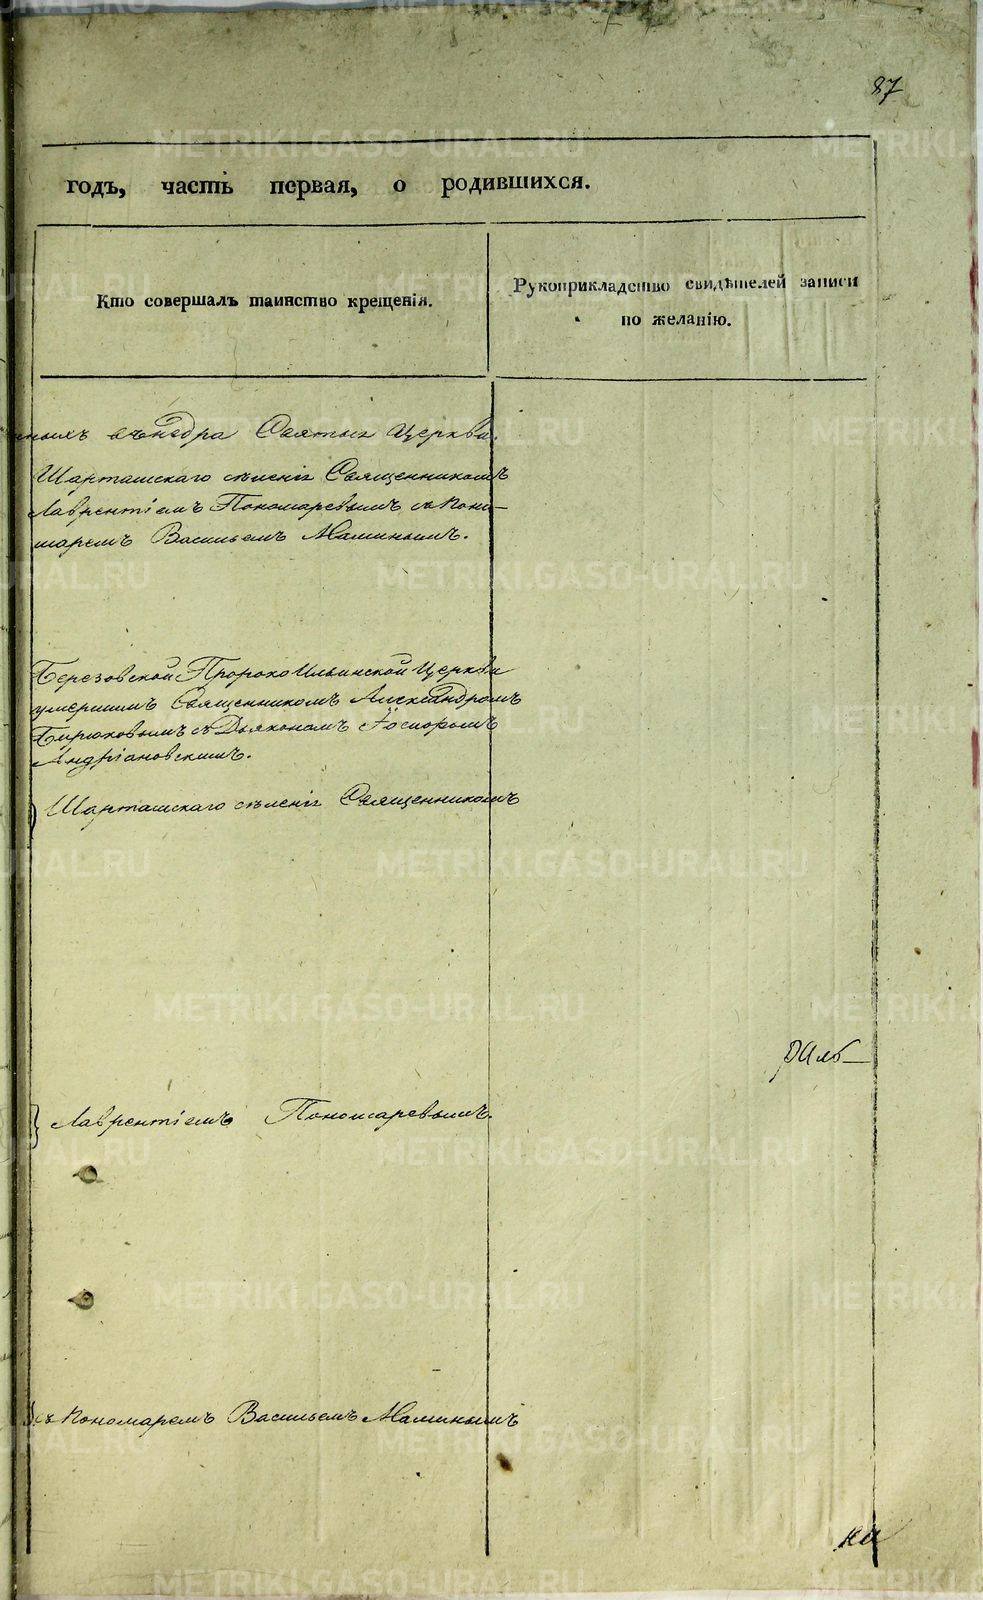 87
годъ, часть первая, о родившихся.
Кто совершалъ таинство крещенія.
Рукоприкладство свидѣтелей записи
по желанію.
въ нѣдра Святыя Церкви.
Шарташскаго селенія Священникомъ
Лаврентіемъ Пономаревымъ съ Поно-
маремъ Васильемъ Маминымъ.
Березовской Пророко Ильинской Церкви
умершимъ Священникомъ Александромъ
Бирюковымъ съ Дьякономъ
Андріановскимъ.
Шарташскаго селенія Священникомъ
Лаврентіемъ Пономаревымъ.
съ Пономаремъ Васильемъ Маминымъ
METRIKI.GASO-URAL.RU